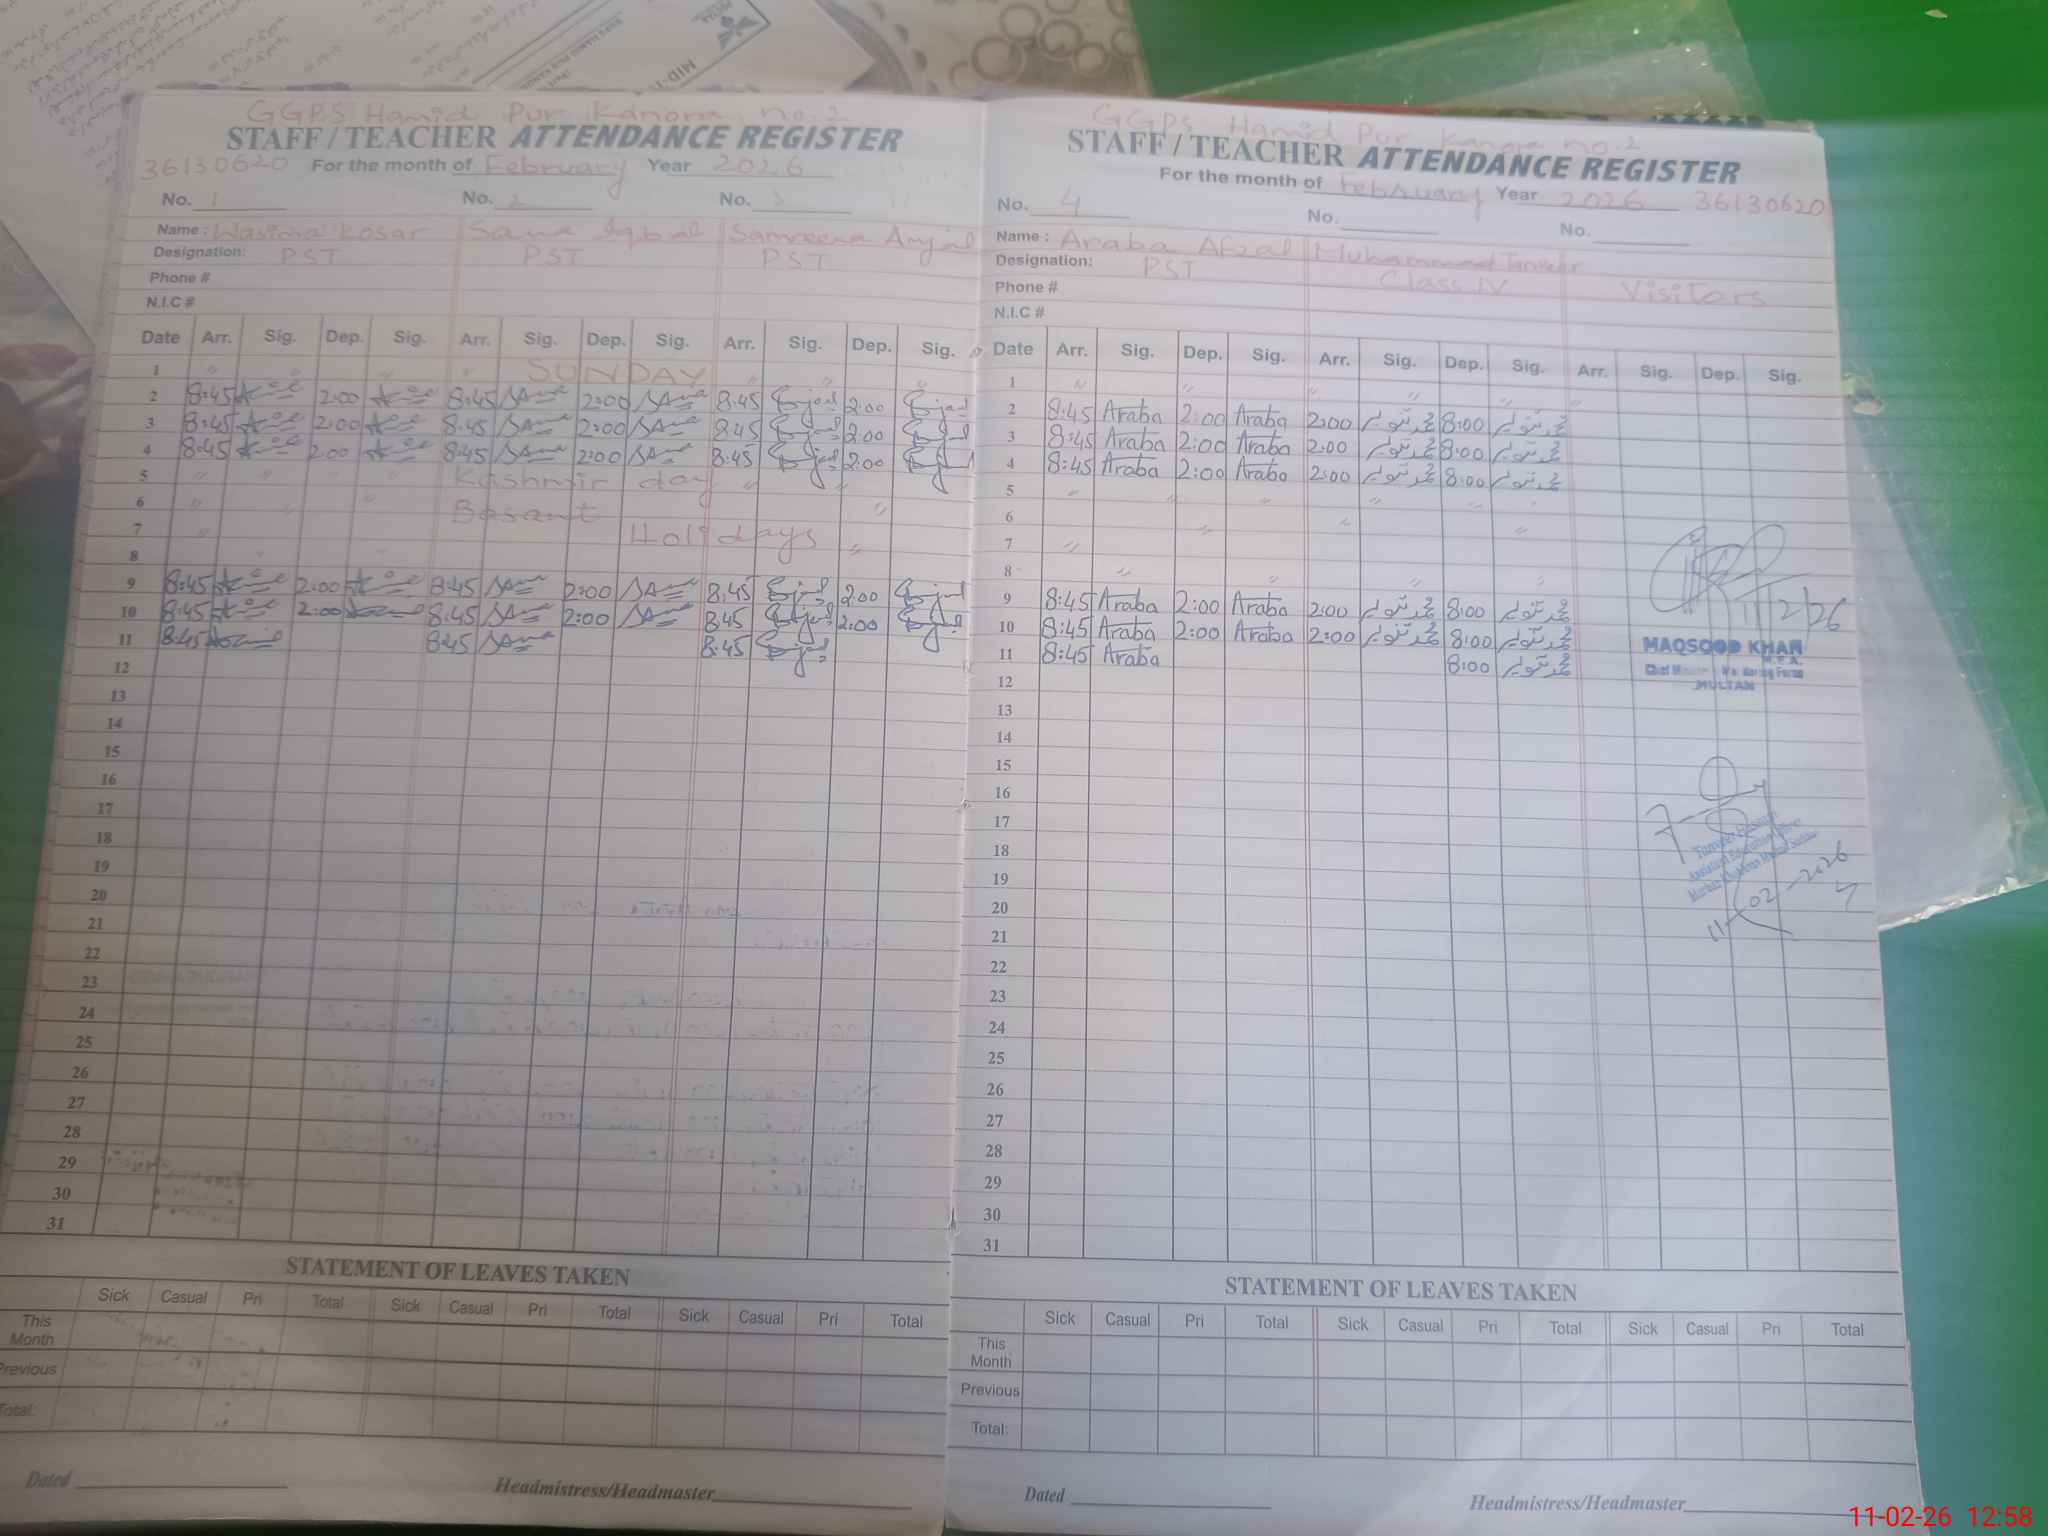 GGPS Hamid Pur Kanora no.2
STAFF / TEACHER ATTENDANCE REGISTER
36130620 For the month of February Year 2026
No. 1 No. 2 No. 3
Name: Wasima Kosar Sana Iqbal Samreena Amjad
Designation: PST PST PST
Phone #
N.I.C #
Date Arr. Sig. Dep. Sig. Arr. Sig. Dep. Sig. Arr. Sig. Dep. Sig.
1 SUNDAY
2 8:45 2:00 8:45 2:00 8:45 2:00
3 8:45 2:00 8:45 2:00 8:45 2:00
4 8:45 2:00 8:45 2:00 8:45 2:00
5 Kashmir day
6 Basant
7 Holidays
8
9 8:45 2:00 8:45 2:00 8:45 2:00
10 8:45 2:00 8:45 2:00 8:45 2:00
11 8:45 8:45 8:45
12
13
14
15
16
17
18
19
20
21
22
23
24
25
26
27
28
29
30
31
STATEMENT OF LEAVES TAKEN
Sick Casual Pri Total Sick Casual Pri Total Sick Casual Pri Total
This Month
Previous
Total:
Dated Headmistress/Headmaster
GGPS Hamid Pur Kanora no.2
STAFF / TEACHER ATTENDANCE REGISTER
For the month of February Year 2026 36130620
No. 4 No. No.
Name: Araba Afzal Muhammad
Designation: PST Class IV Visitors
Phone #
N.I.C #
Date Arr. Sig. Dep. Sig. Arr. Sig. Dep. Sig. Arr. Sig. Dep. Sig.
1
2 8:45 Araba 2:00 Araba 2:00 محمد تنویر 8:00 محمد تنویر
3 8:45 Araba 2:00 Araba 2:00 محمد تنویر 8:00 محمد تنویر
4 8:45 Araba 2:00 Araba 2:00 محمد تنویر 8:00 محمد تنویر
5
6
7
8
9 8:45 Araba 2:00 Araba 2:00 محمد تنویر 8:00 محمد تنویر
10 8:45 Araba 2:00 Araba 2:00 محمد تنویر 8:00 محمد تنویر
11 8:45 Araba 8:00 محمد تنویر
12
13
14
15
16
17
18
19
20
21
22
23
24
25
26
27
28
29
30
31
11/2/26
MAQSOOD KHAN
M.E.A.
MULTAN
11-02-2026
STATEMENT OF LEAVES TAKEN
Sick Casual Pri Total Sick Casual Pri Total Sick Casual Pri Total
This Month
Previous
Total:
Dated Headmistress/Headmaster
11-02-26 12:58